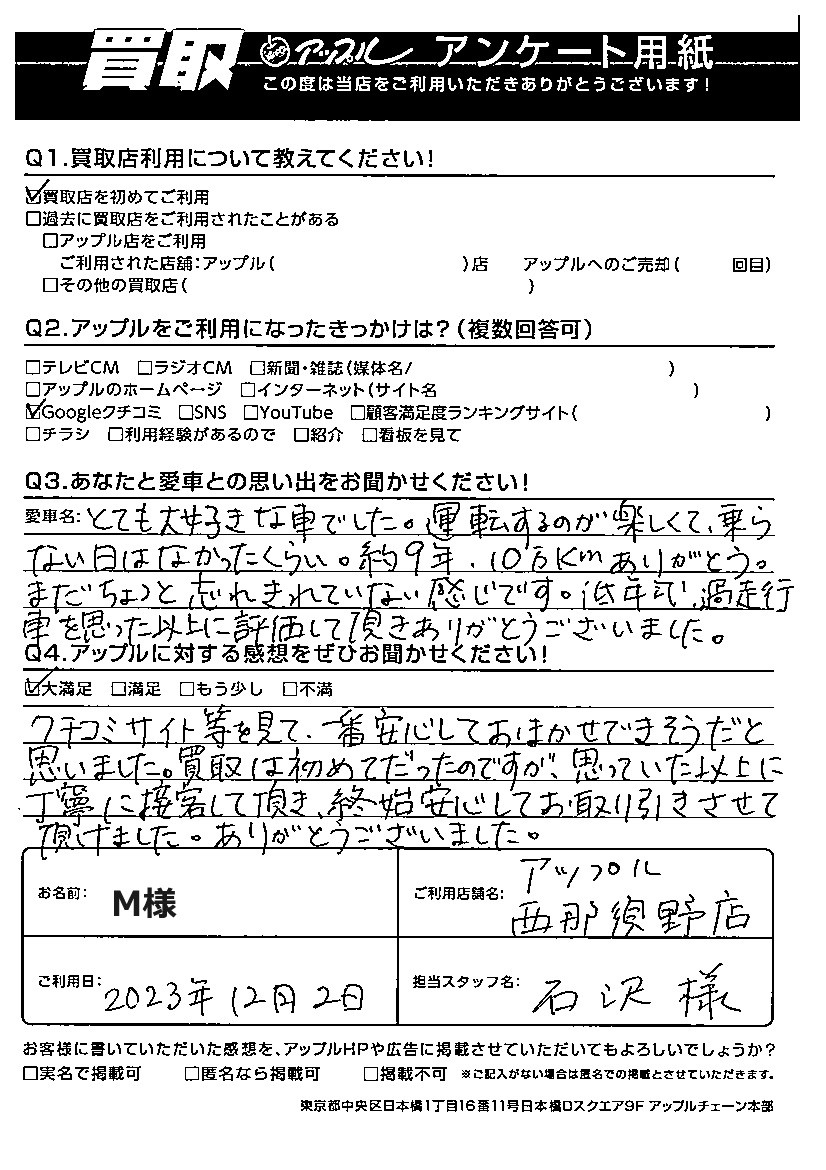 買取 アップル アンケート用紙
この度は当店をご利用いただきありがとうございます!
Q1.買取店利用について教えてください!
☑買取店を初めてご利用
□過去に買取店をご利用されたことがある
□アップル店をご利用
ご利用された店舗:アップル( )店 アップルへのご売却( 回目)
□その他の買取店( )
Q2.アップルをご利用になったきっかけは?(複数回答可)
□テレビCM □ラジオCM □新聞・雑誌(媒体名/ )
□アップルのホームページ □インターネット(サイト名 )
☑Googleクチコミ □SNS □YouTube □顧客満足度ランキングサイト( )
□チラシ □利用経験があるので □紹介 □看板を見て
Q3.あなたと愛車との思い出をお聞かせください!
愛車名:とても大好きな車でした。運転するのが楽しくて、乗ら
ない日はなかったくらい。約9年、10万Kmありがとう。
まだちょっと忘れきれていない感じです。低年式、過走行
車を思った以上に評価して頂きありがとうございました。
Q4.アップルに対する感想をぜひお聞かせください!
☑大満足 □満足 □もう少し □不満
クチコミサイト等を見て、一番安心しておまかせできそうだと
思いました。買取は初めてだったのですが、思っていた以上に
丁寧に接客して頂き、終始安心してお取り引きさせて
頂けました。ありがとうございました。
お名前: M様
ご利用店舗名: アップル
西那須野店
ご利用日: 2023年12月2日
担当スタッフ名: 石沢 様
お客様に書いていただいた感想を、アップルHPや広告に掲載させていただいてもよろしいでしょうか?
□実名で掲載可 □匿名なら掲載可 □掲載不可 ※ご記入がない場合は匿名での掲載とさせていただきます。
東京都中央区日本橋1丁目16番11号日本橋Dスクエア9F アップルチェーン本部